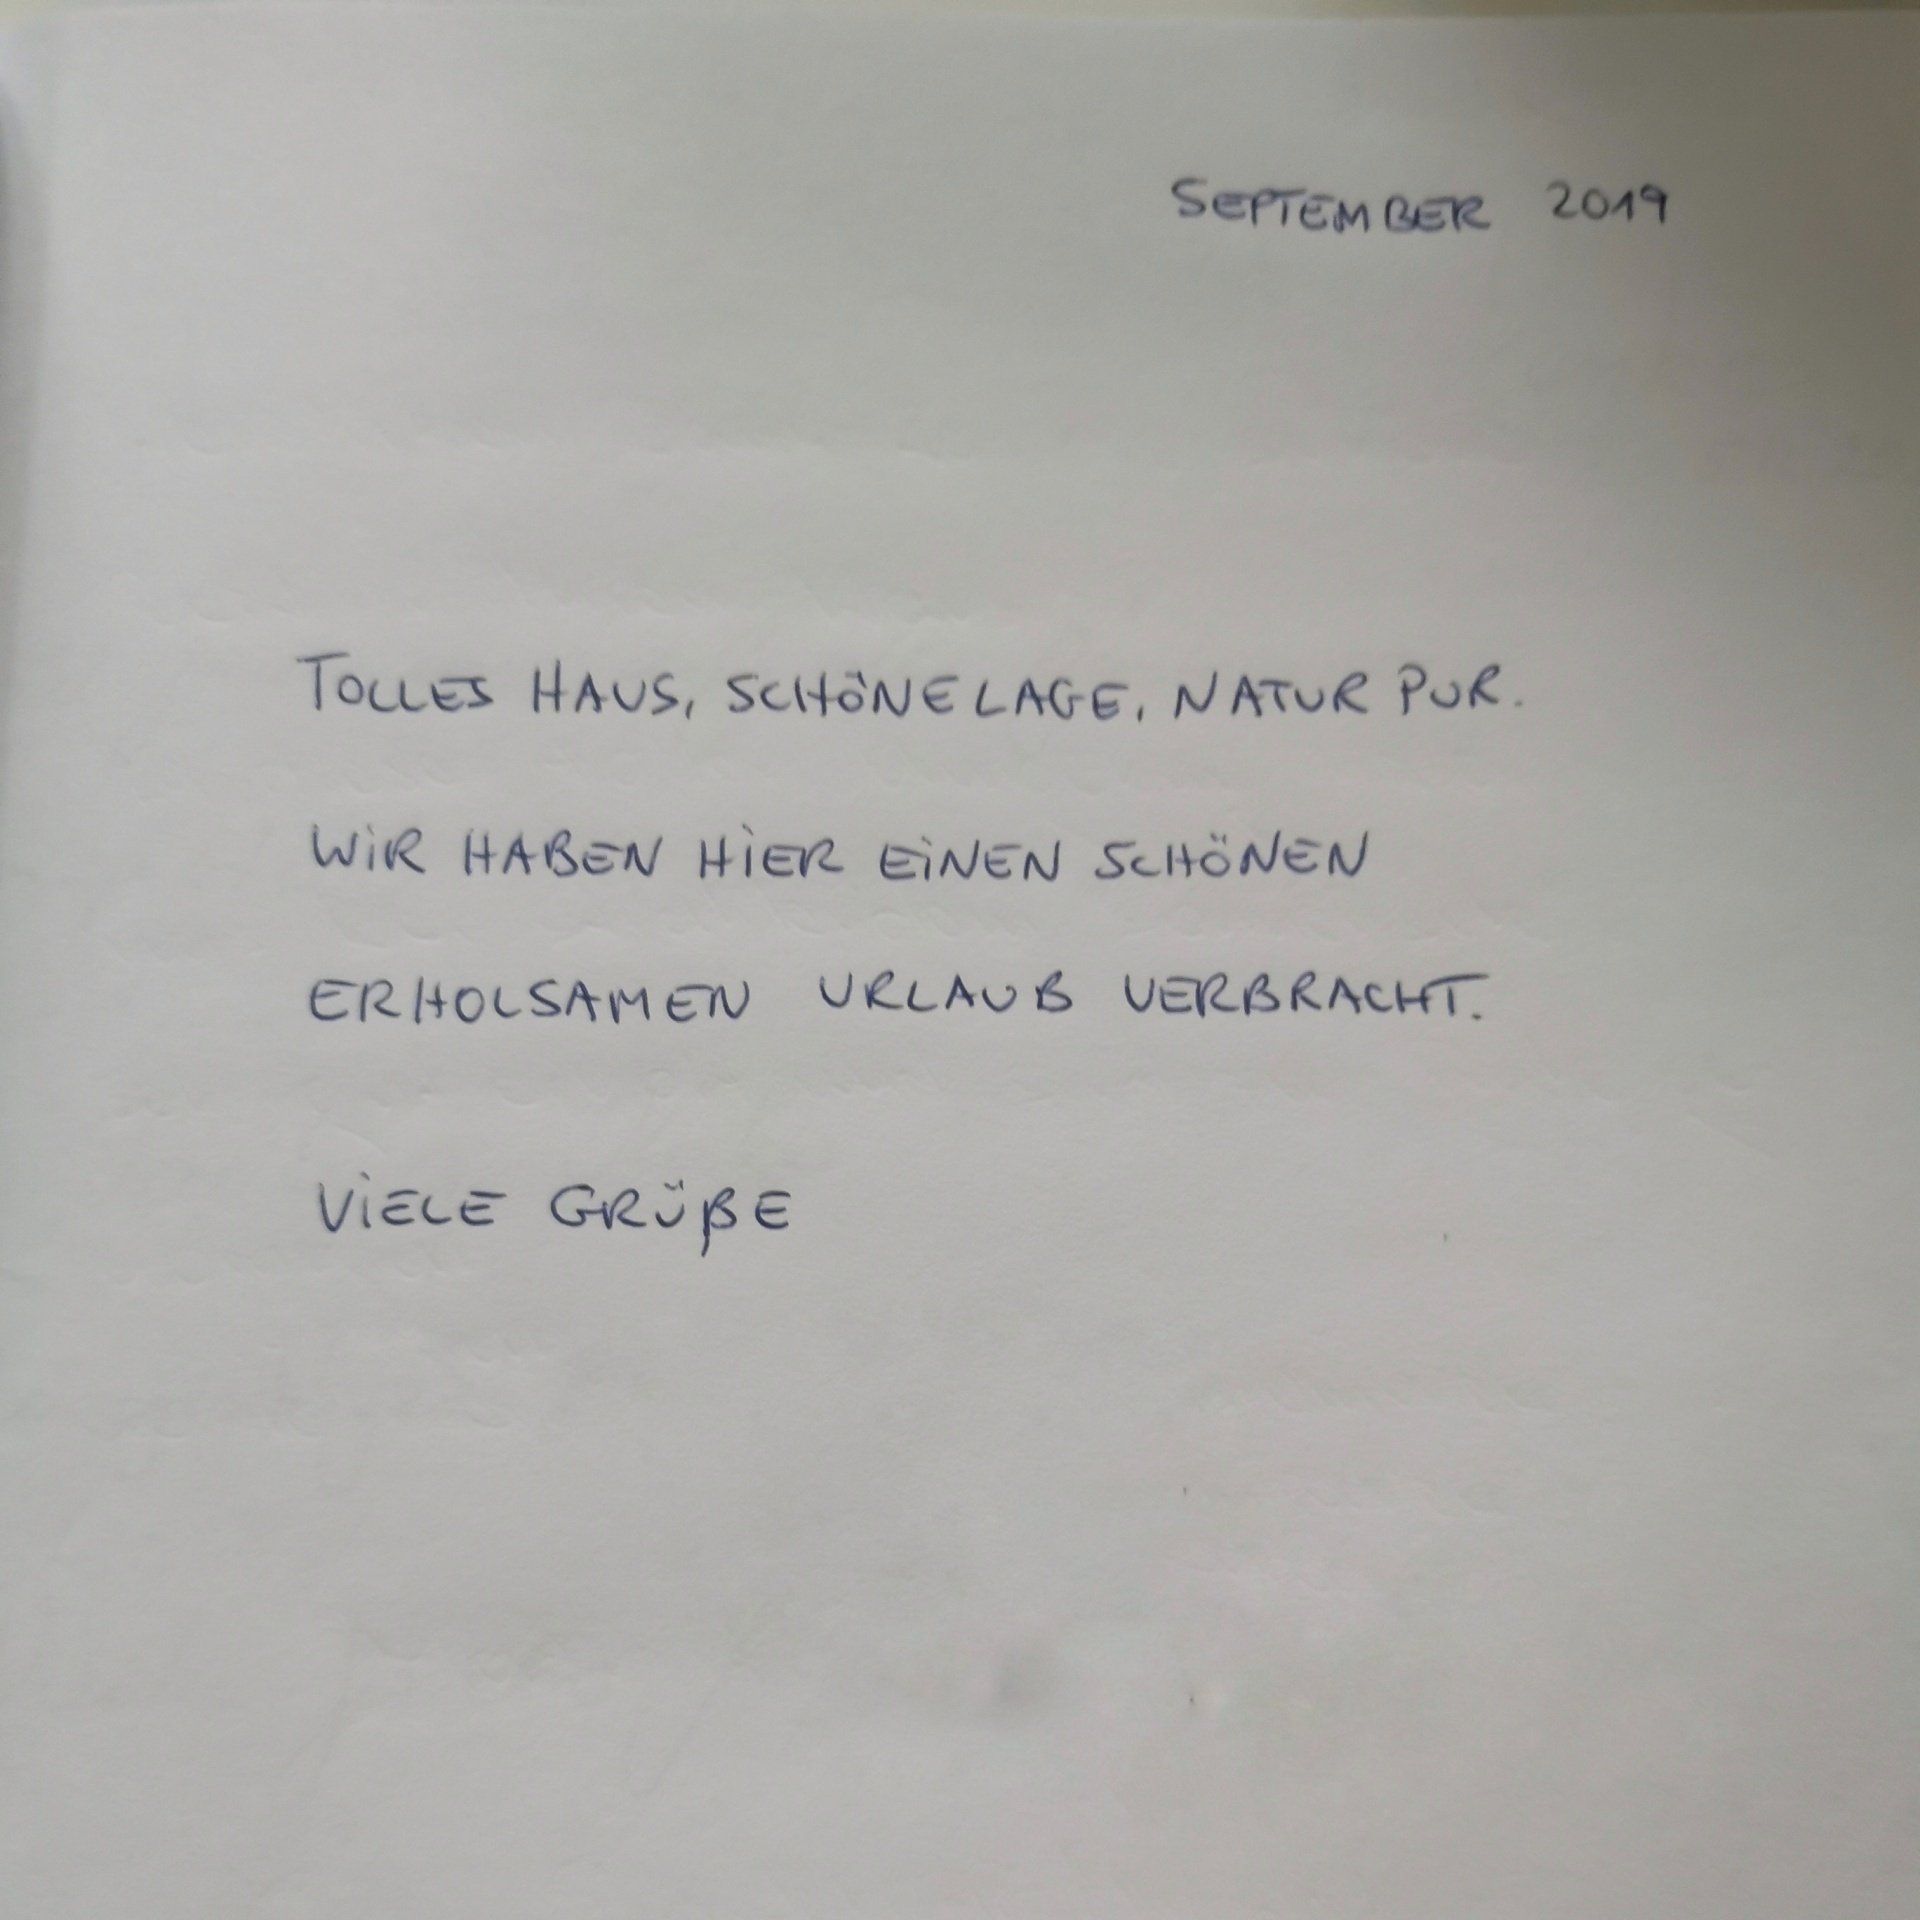 SEPTEMBER 2019
TOLLES HAUS, SCHÖNE LAGE, NATUR PUR.
WiR HABEN HiER EiNEN SCHÖNEN
ERHOLSAMEN URLAUB VERBRACHT.
ViELE GRÜßE